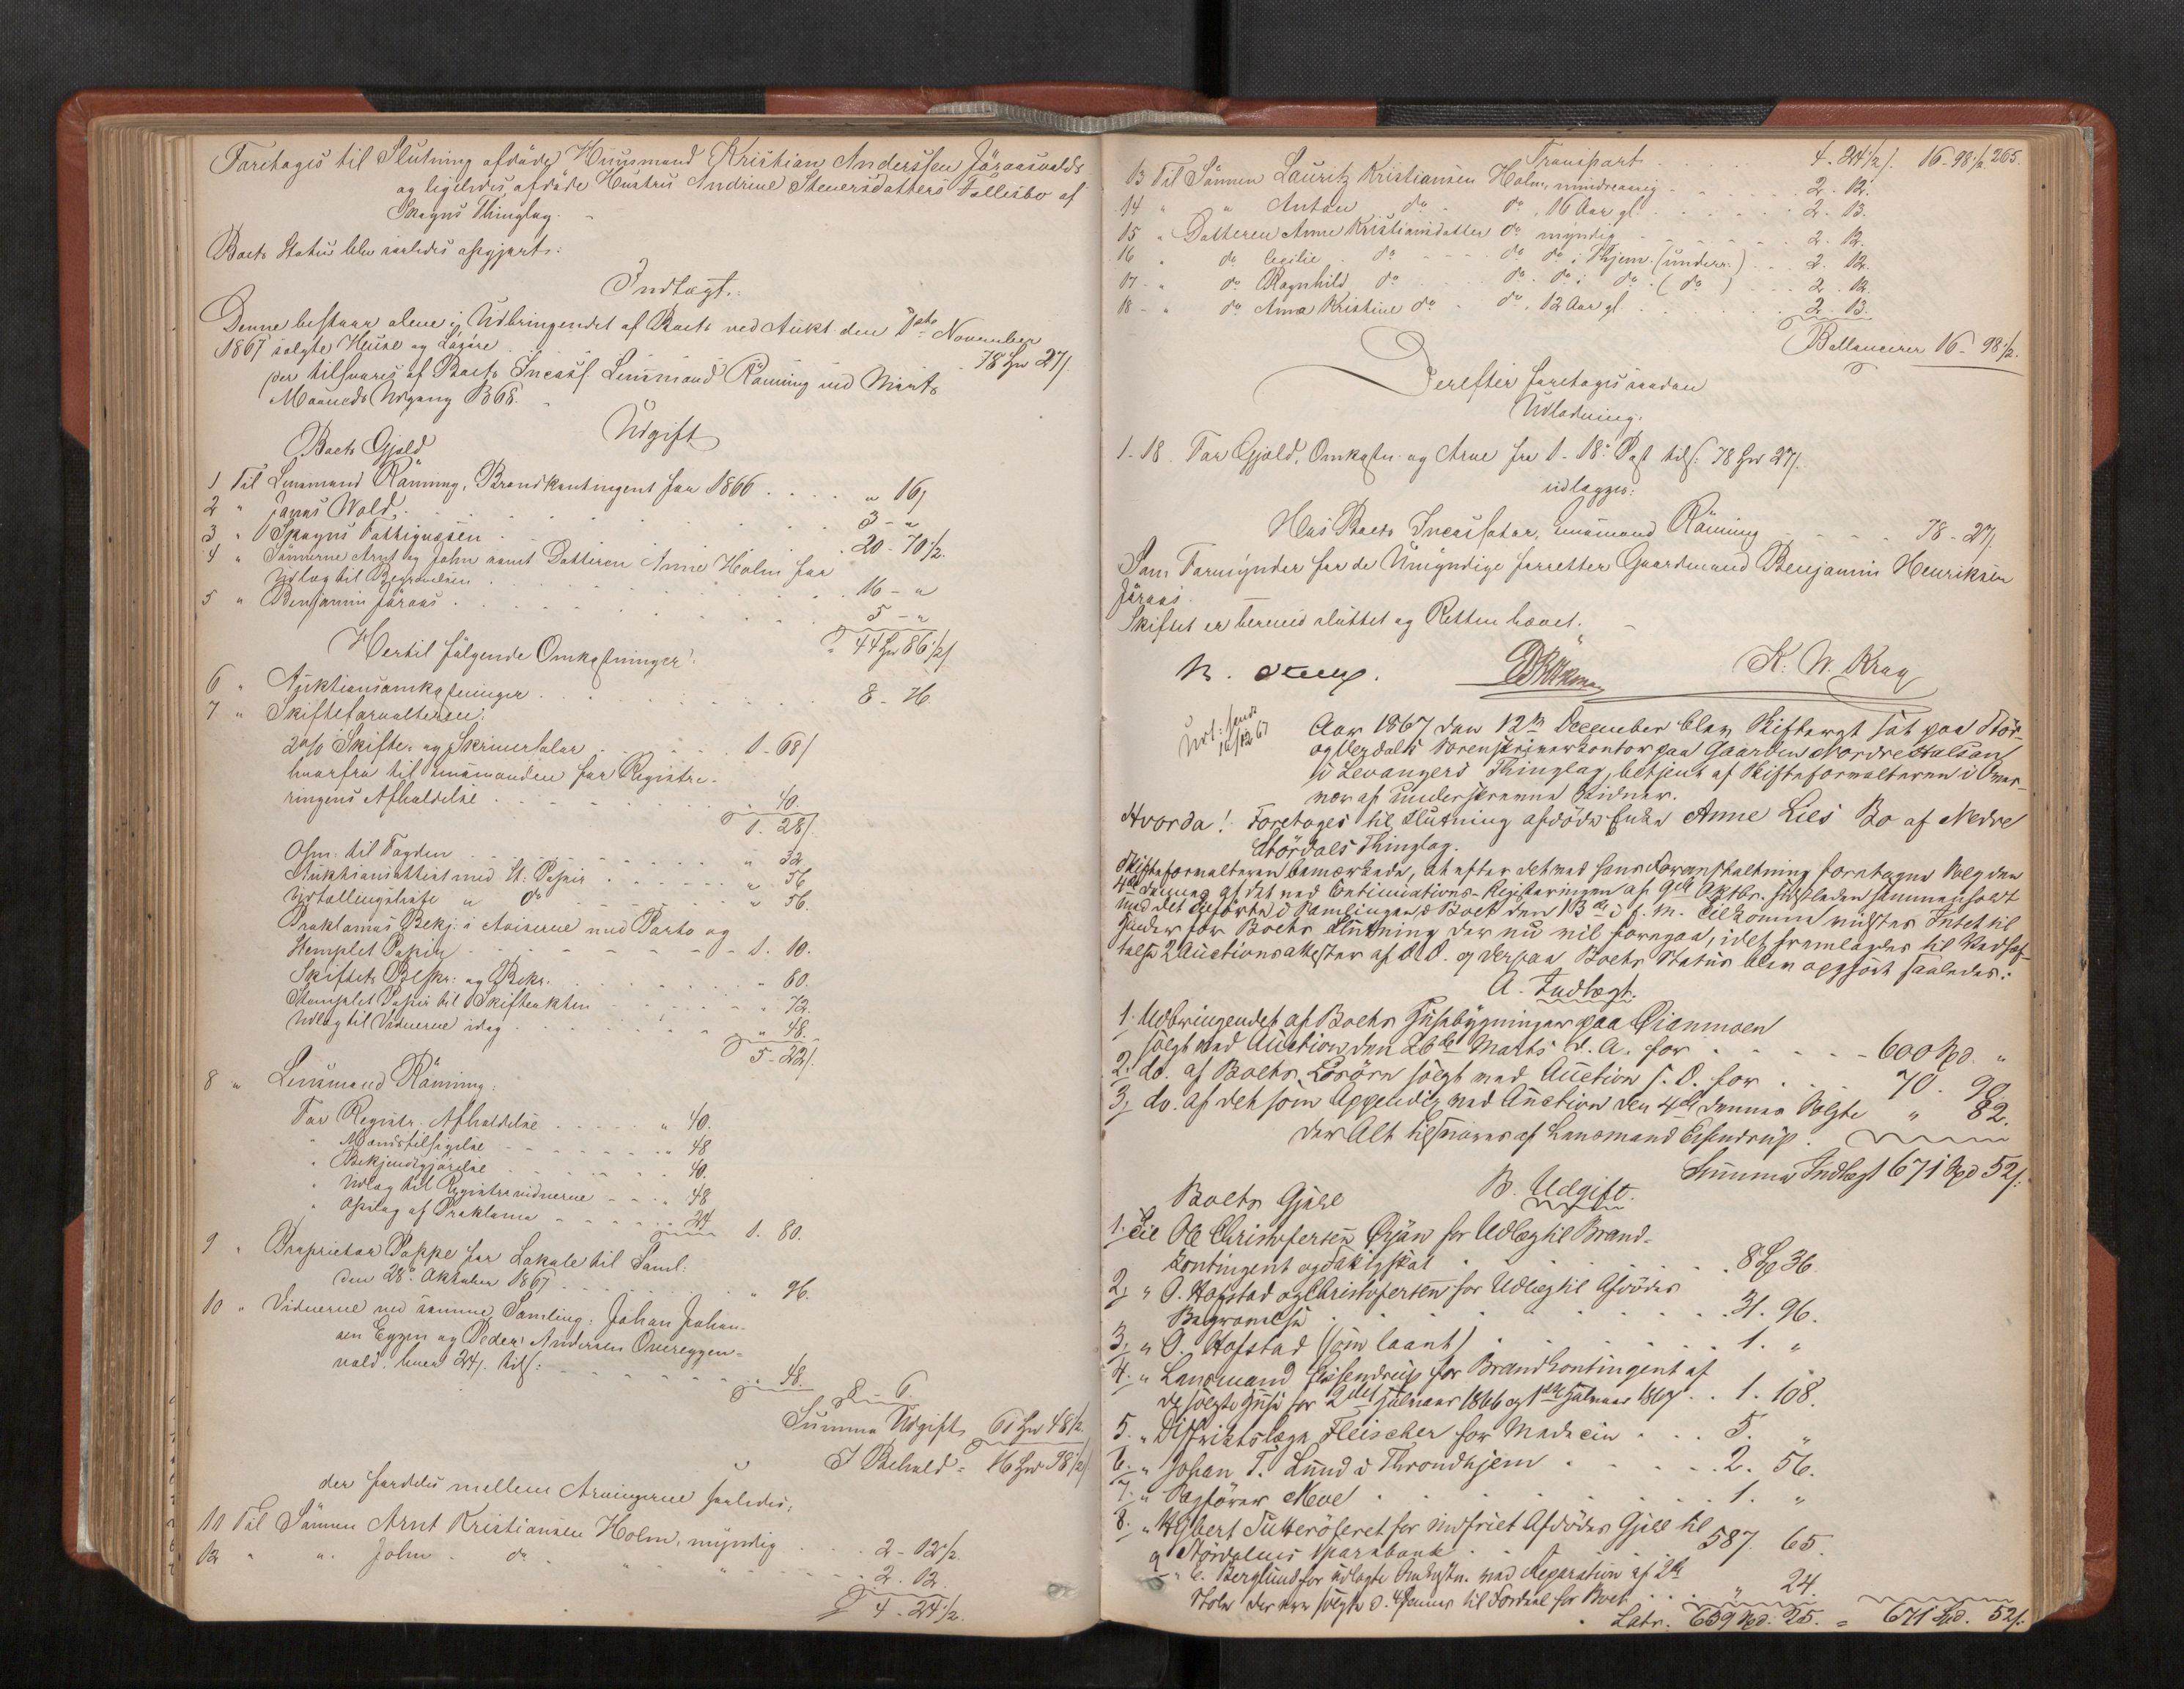 Foretages til Slutning afdøde Huusmand Kristian Anderssen Jøraasvolds
og ligeledes afdøde Hustrus Andrine Stenersdatters Fællesbo af
Skogns Thinglag. -
Boets Status blev saaledes opgjort:
Indtægt.
Denne bestaar alene i Udbringendet af Boets ved Aukt. den 1ste November
1867 solgte Huse og Løsøre . . . 78 Spd 27 s.
der tilsvares af Boets Incass. Lensmand Rønning ved Marts
Maaneds Udgang 1868.
Udgift
Boets Gjæld
1 Til Lensmand Rønning, Brandkontingent for 1866 . . . . " 16 s
2 " Jonas Wold . . . 3 - "
3 " Skogns Fattigvæsen . . . 20 - 70 1/2.
4 " Sønnerne Arnt og John samt Datteren Anne Holm for
Udlæg til Begravelsen . . . 16 - "
5 " Benjamin Jøraas . . . 5 - "
44 Spd 86 1/2 s
Hertil følgende Omkostninger:
6 " Auktionsomkostninger . . . 8 - 16.
7 " Skifteforvalteren:
2 % Skifte- og Skriversalær . . . 1 - 68 s
hvorfra til Lensmanden for Registre-
ringens Afholdelse . . . " 40.
1. 28 s.
Opm. til Fogden . . . " 32
Auktionsattest med St: Papir . . . " 56
Udtællingsliste " do . . . " 56.
Proklamas Bekj: i Aviserne med Porto og
Stemplet Papir . . . 1. 10.
Skiftets Beskr: og Bekr. . . . " 60.
Stemplet Papir til Skifteakten . . . " 72.
Udlæg til Vidnerne idag . . . " 48.
5 - 22 s.
8 " Lensmand Rønning:
For Registr. Afholdelse . . . " 40.
" Mandstilsigelse . . . " 48
" Bekjendtgjørelse . . . " 40.
" Udlæg til Registrervidnerne . . . " 48
" Opslag af Proklama . . . " 24
1. 80.
9 " Proprietær Poppe for Lokale til Saml:
den 28de Oktober 1867 . . . " 96.
10 " Vidnerne ved samme Samling: Johan Johan-
sen Eggen og Peder Andersen Overeggen-
vald, hver 24 s. tils: . . . " 48.
8 - 6.
Summa Udgift 61 Spd 48 1/2.
I Behold = 16 Spd 98 1/2 s
der fordeles mellem Arvingerne saaledes:
11 Til Sønnen Arnt Kristiansen Holm, myndig . . . 2 - 12 1/2.
12 " " John do " . . . 2. 12.
4 - 24 1/2.
265.
Transport . . . 4 - 24 1/2 s. 16 - 98 1/2
13 Til Sønnen Lauritz Kristiansen Holm, mindreaarig . . . 2. 12.
14 " " Anton do do, 16 Aar gl . . . 2. 13.
15 " Datteren Anne Kristiansdatter do myndig . . . 2. 12.
16 " do Cecilie do . . . do do i Thjem. (underr.) . . . 2. 12.
17 - " do Ragnhild do . . . do do i do (do) . . . 2. 12.
18 - " do Anna Kristine do . do, 12 Aar gl . . . 2. 13.
Ballancerer 16 - 98 1/2.
Derefter foretages saadan
Udlodning.
1-18. For Gjæld, Omkostn. og Arve fra 1-18de Post tils: 78 Spd 27 s.
udlægges:
Hos Boets Incassator, Lensmand Rønning . . . 78 - 27 s.
Som Formynder for de Umyndige forretter Gaardmand Benjamin Henriksen
Jøraas.
Skiftet er hermed sluttet og Retten hævet. -
K. W. Krag
Aar 1867 den 12te December blev Skifteret sat paa Stør-
og Verdalens Sorenskriverkontor paa Gaarden Nordre Halsan
i Levangers Thinglag, betjent af Skifteforvalteren i Over-
vær af underskrevne Vidner.
Hvorda! Foretages til Slutning afdøde Enke Anne Lies Bo af Nedre
Størdals Thinglag.
Skifteforvalteren bemærkede, at efter det ved hans Foranstaltning foretagne Salg den
4de dennes af det ved Continuations-Registeringen af 9de Oktbr. sidstleden sammenholdt
med det Anførte i Samlingen i Boet den 13de i f. M. Tilkomne mødte Intet til
Hinder for Boets Slutning der nu vil foregaa, idet fremlagdes til Vedhæf-
telse 2 Auctionsattester af D. D. og derpaa Boets Status blev opgjort saaledes:
A. Indtægt.
1. Udbringendet af Boets Husebygninger paa Øianmoen
solgt ved Auction den 26de Marts d. A. for . . . 600 Spd. "
2. do. af Boets Løsøre solgt ved Auction s. D. for . . . 70. 90
3. do. af det som Appendix ved Auction den 4de dennes Solgte " 82.
der Alt tilsvares af Lensmand Eisendrup.
Summa Indtægt 671 Spd 52 s.
B. Udgift.
Boets Gjæld
1. Til Ole Christofersen Øyan for Udlæg til Brand-
kontingent og Fattigskat . . . 8 Spd 36.
2. " O. Hofstad og Christofersen for Udlæg til Afdødes
Begravelse . . . 31. 96.
3. " O. Hofstad (som laant) . . . 1. "
4. " Lensmand Eisendrup for Brandkontingent af
de solgte Huse for 2det Halvaar 1866 og 1ste Halvaar 1867 . . 1. 108.
5. " Distriktslæge Fleischer for Medicin . . . 5. "
6. " Johan T. Lund i Throndhjem . . . 2. 56.
7. " Sagfører Moe . . . 1. "
8. " for indfriet Afdødes Gjæld til
Størdalens Sparebank . . . 587. 65.
9 " E. Berglund for udlagte Omkostn. ved Reparation af 2de
Stole der ere solgte d. 4 dennes til Fordeel for Boet . . . " 24.
Latr. 639 Spd. 25. = 671 Spd. 52 s.